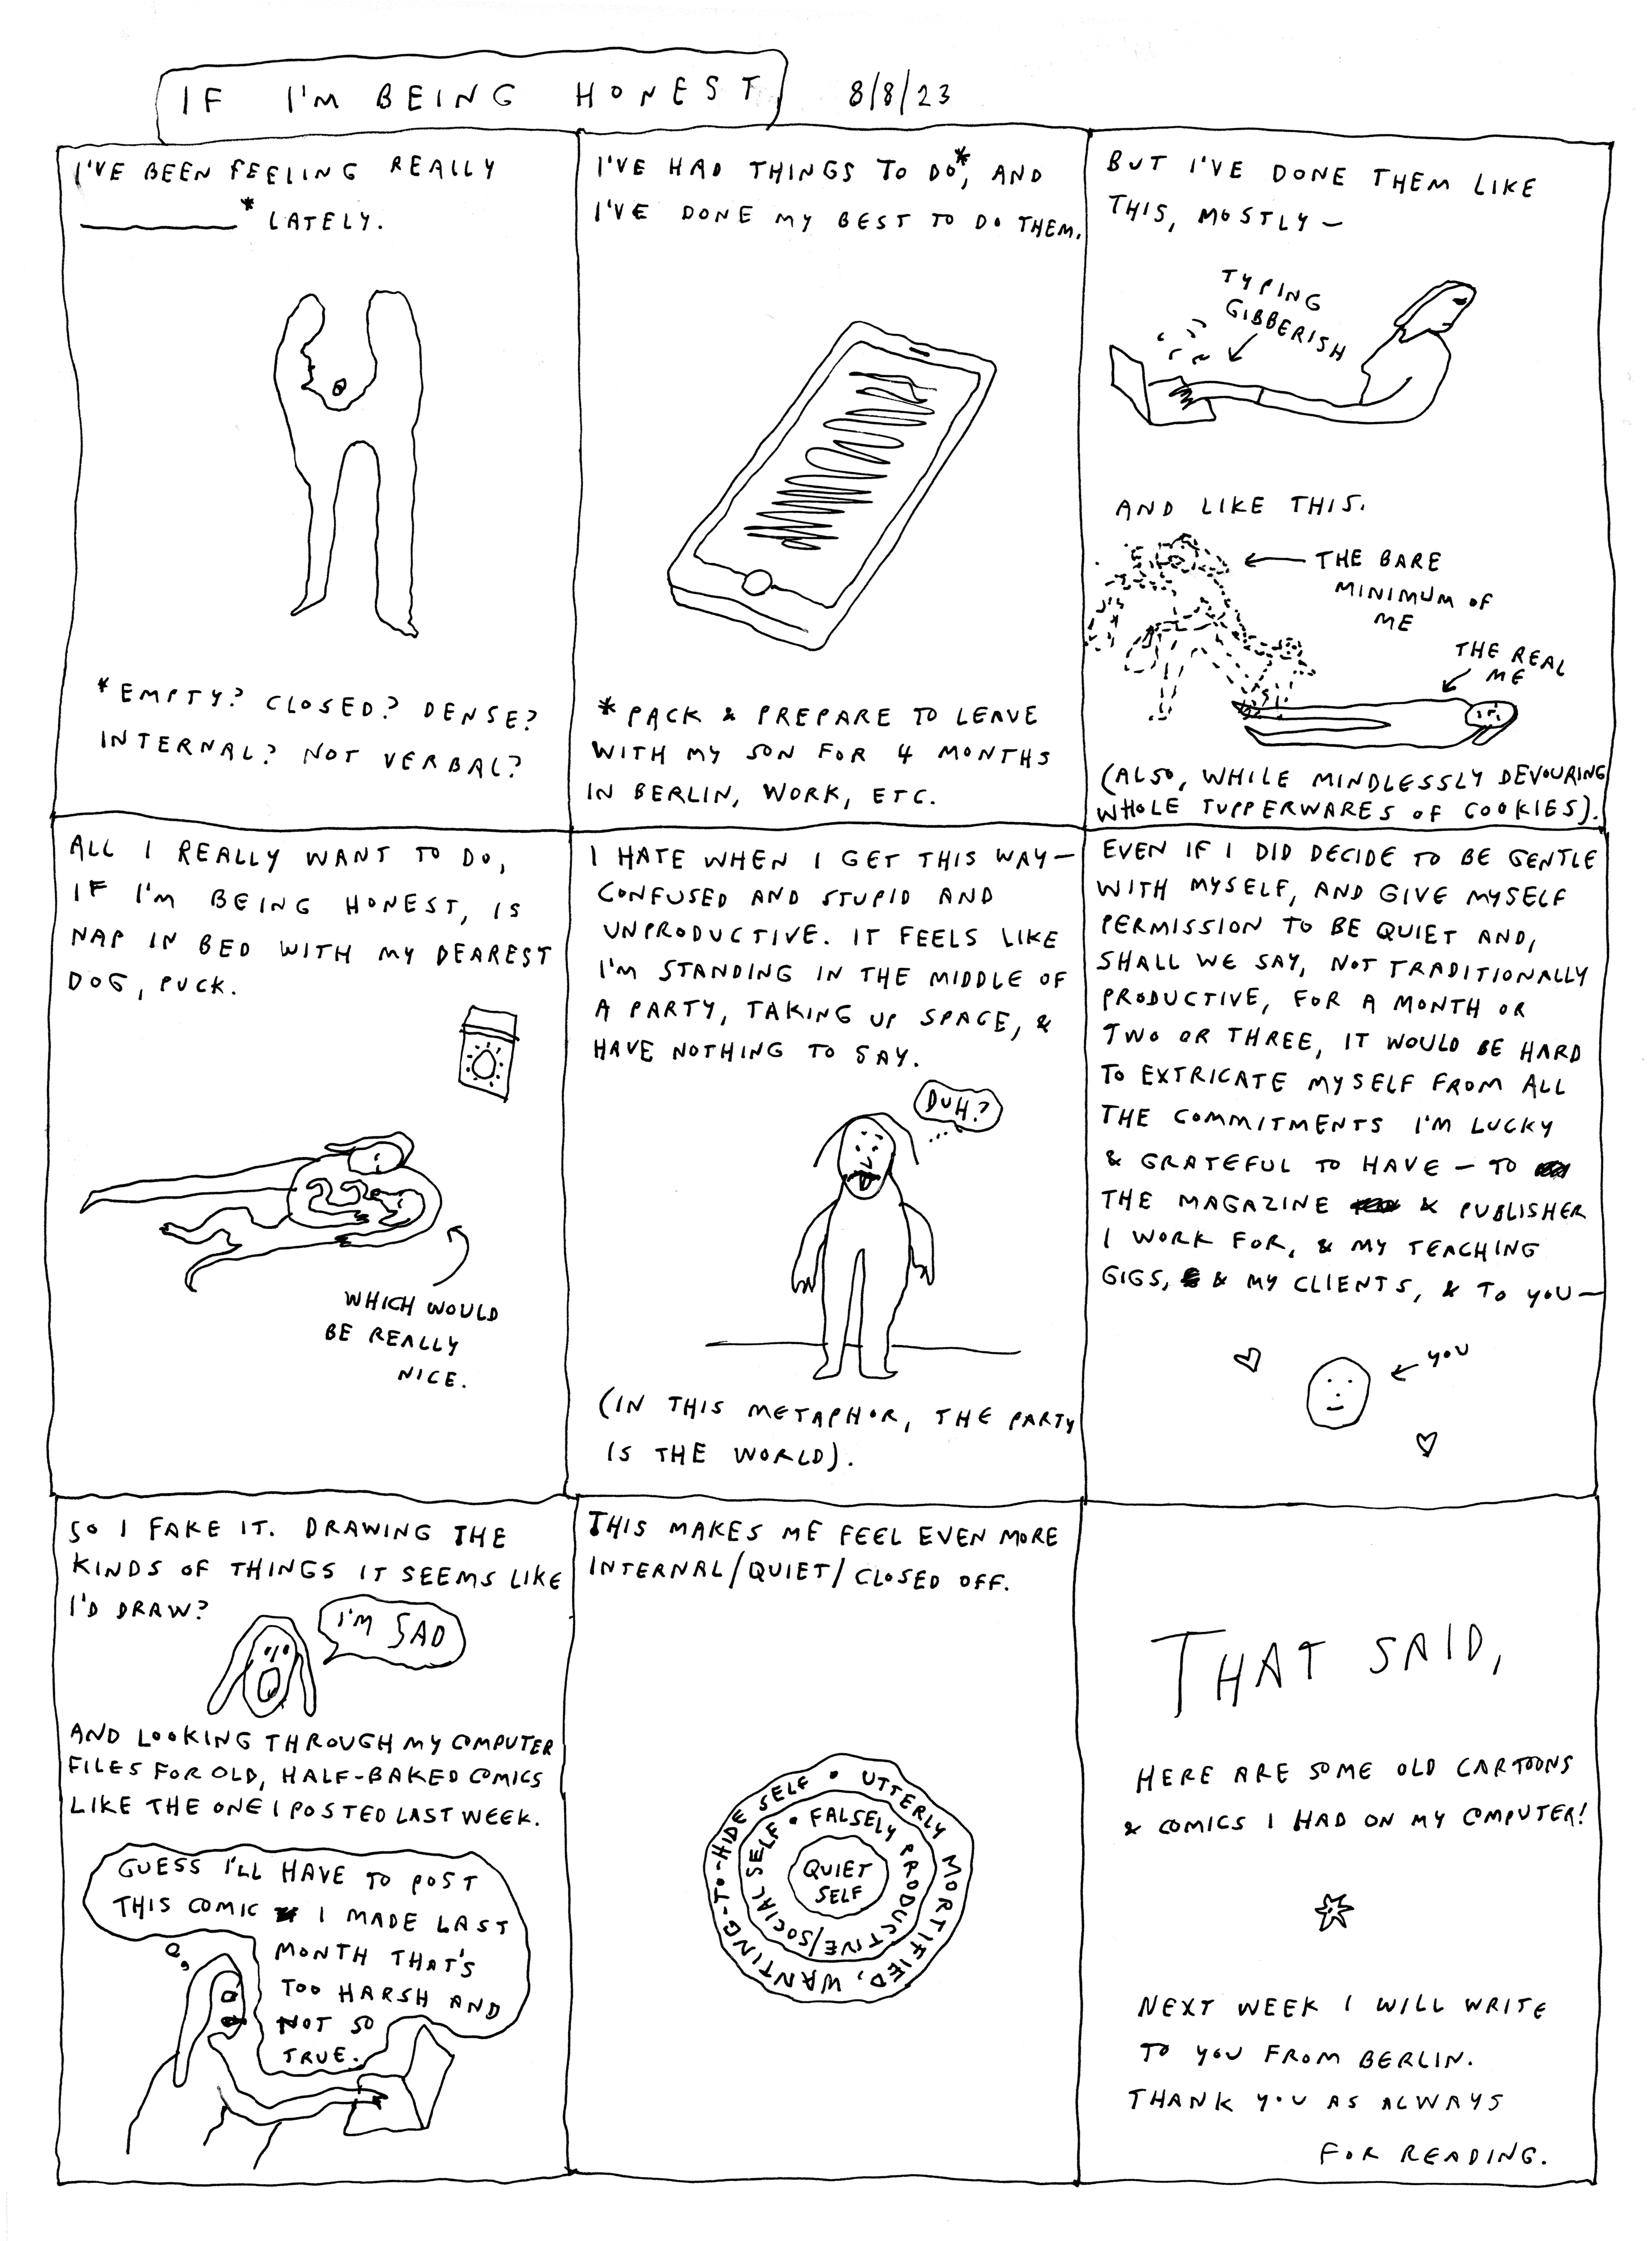 IF I'M BEING HONEST
8/8/23
I'VE BEEN FEELING REALLY
________* LATELY.
*EMPTY? CLOSED? DENSE?
INTERNAL? NOT VERBAL?
I'VE HAD THINGS TO DO*, AND
I'VE DONE MY BEST TO DO THEM.
*PACK & PREPARE TO LEAVE
WITH MY SON FOR 4 MONTHS
IN BERLIN, WORK, ETC.
BUT I'VE DONE THEM LIKE
THIS, MOSTLY —
TYPING
GIBBERISH
AND LIKE THIS.
THE BARE
MINIMUM OF
ME
THE REAL
ME
(ALSO, WHILE MINDLESSLY DEVOURING
WHOLE TUPPERWARES OF COOKIES).
ALL I REALLY WANT TO DO,
IF I'M BEING HONEST, IS
NAP IN BED WITH MY DEAREST
DOG, PUCK.
WHICH WOULD
BE REALLY
NICE.
I HATE WHEN I GET THIS WAY —
CONFUSED AND STUPID AND
UNPRODUCTIVE. IT FEELS LIKE
I'M STANDING IN THE MIDDLE OF
A PARTY, TAKING UP SPACE, &
HAVE NOTHING TO SAY.
DUH?
(IN THIS METAPHOR, THE PARTY
IS THE WORLD).
EVEN IF I DID DECIDE TO BE GENTLE
WITH MYSELF, AND GIVE MYSELF
PERMISSION TO BE QUIET AND,
SHALL WE SAY, NOT TRADITIONALLY
PRODUCTIVE, FOR A MONTH OR
TWO OR THREE, IT WOULD BE HARD
TO EXTRICATE MYSELF FROM ALL
THE COMMITMENTS I'M LUCKY
& GRATEFUL TO HAVE — TO
THE MAGAZINE & PUBLISHER
I WORK FOR, & MY TEACHING
GIGS, & MY CLIENTS, & TO YOU —
YOU
SO I FAKE IT. DRAWING THE
KINDS OF THINGS IT SEEMS LIKE
I'D DRAW?
I'M SAD
AND LOOKING THROUGH MY COMPUTER
FILES FOR OLD, HALF-BAKED COMICS
LIKE THE ONE I POSTED LAST WEEK.
GUESS I'LL HAVE TO POST
THIS COMIC I MADE LAST
MONTH THAT'S
TOO HARSH AND
NOT SO
TRUE.
THIS MAKES ME FEEL EVEN MORE
INTERNAL/QUIET/CLOSED OFF.
UTTERLY MORTIFIED, WANTING-TO-HIDE SELF •
FALSELY PRODUCTIVE/SOCIAL SELF •
QUIET
SELF
THAT SAID,
HERE ARE SOME OLD CARTOONS
& COMICS I HAD ON MY COMPUTER!
NEXT WEEK I WILL WRITE
TO YOU FROM BERLIN.
THANK YOU AS ALWAYS
FOR READING.